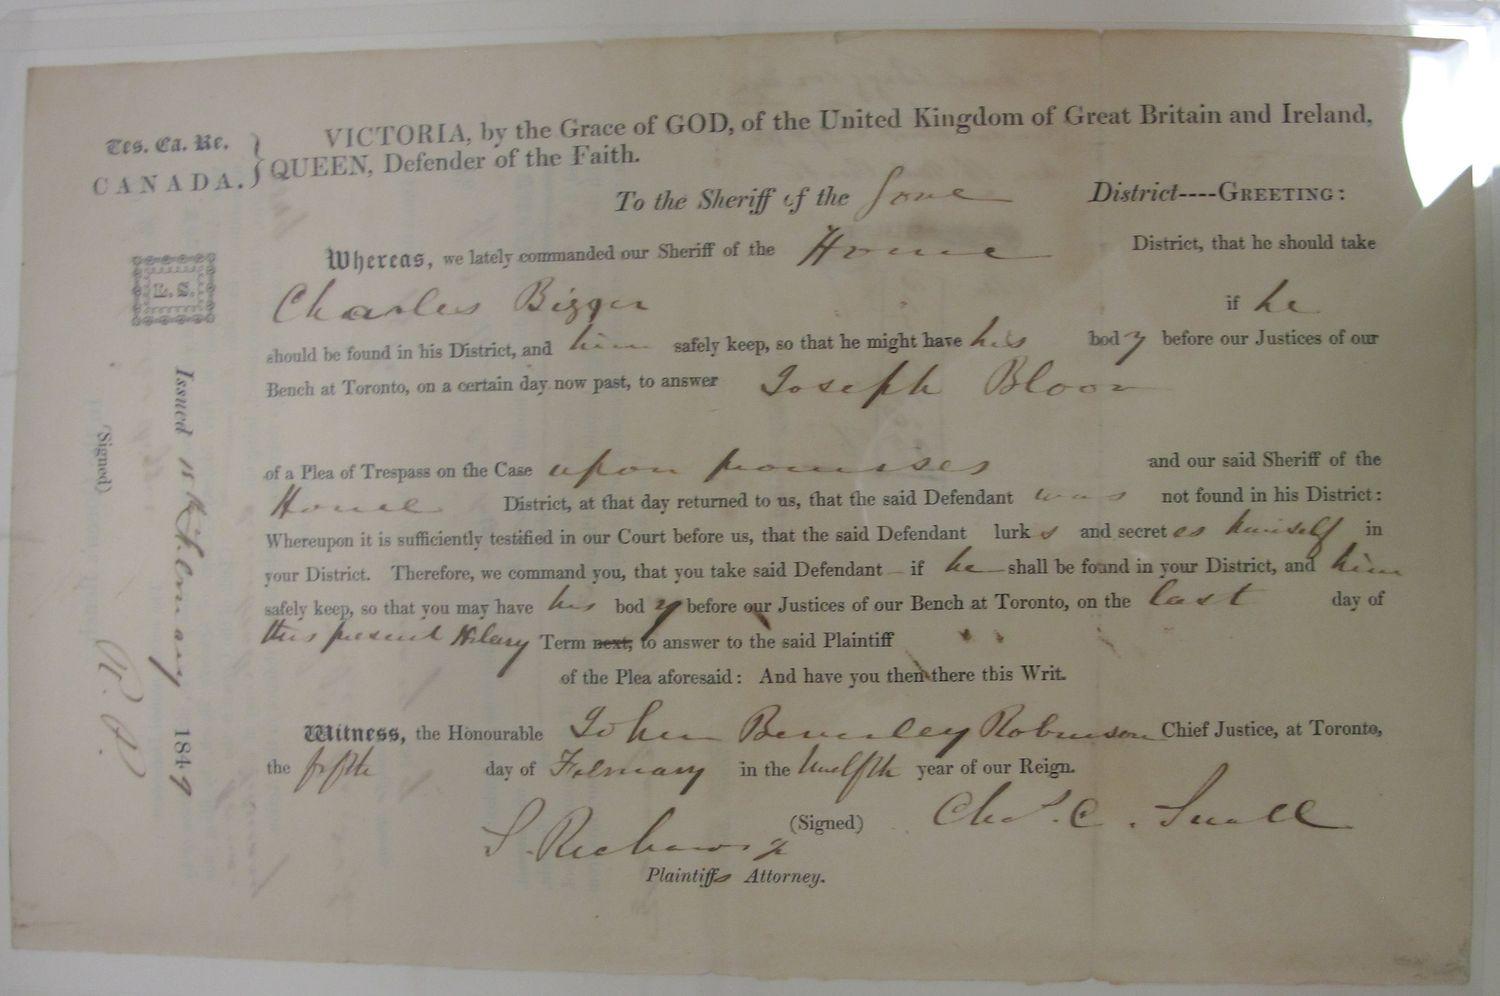 Tes. Ca. Re.
CANADA.
VICTORIA, by the Grace of GOD, of the United Kingdom of Great Britain and Ireland,
QUEEN, Defender of the Faith.
To the Sheriff of the Gore District----GREETING:
Whereas, we lately commanded our Sheriff of the Home District, that he should take
Charles Bigger if he
should be found in his District, and him safely keep, so that he might have his body before our Justices of our
Bench at Toronto, on a certain day now past, to answer Joseph Bloor
of a Plea of Trespass on the Case upon promises and our said Sheriff of the
Home District, at that day returned to us, that the said Defendant was not found in his District:
Whereupon it is sufficiently testified in our Court before us, that the said Defendant lurks and secretes himself in
your District. Therefore, we command you, that you take said Defendant if he shall be found in your District, and him
safely keep, so that you may have his body before our Justices of our Bench at Toronto, on the last day of
this present Hilary Term next, to answer to the said Plaintiff
of the Plea aforesaid: And have you then there this Writ.
Witness, the Honourable John Beverley Robinson Chief Justice, at Toronto,
the fifth day of February in the twelfth year of our Reign.
(Signed) Chas. C. Small
S. Richards
Plaintiffs Attorney.
L. S.
Issued February 1849
(Signed)